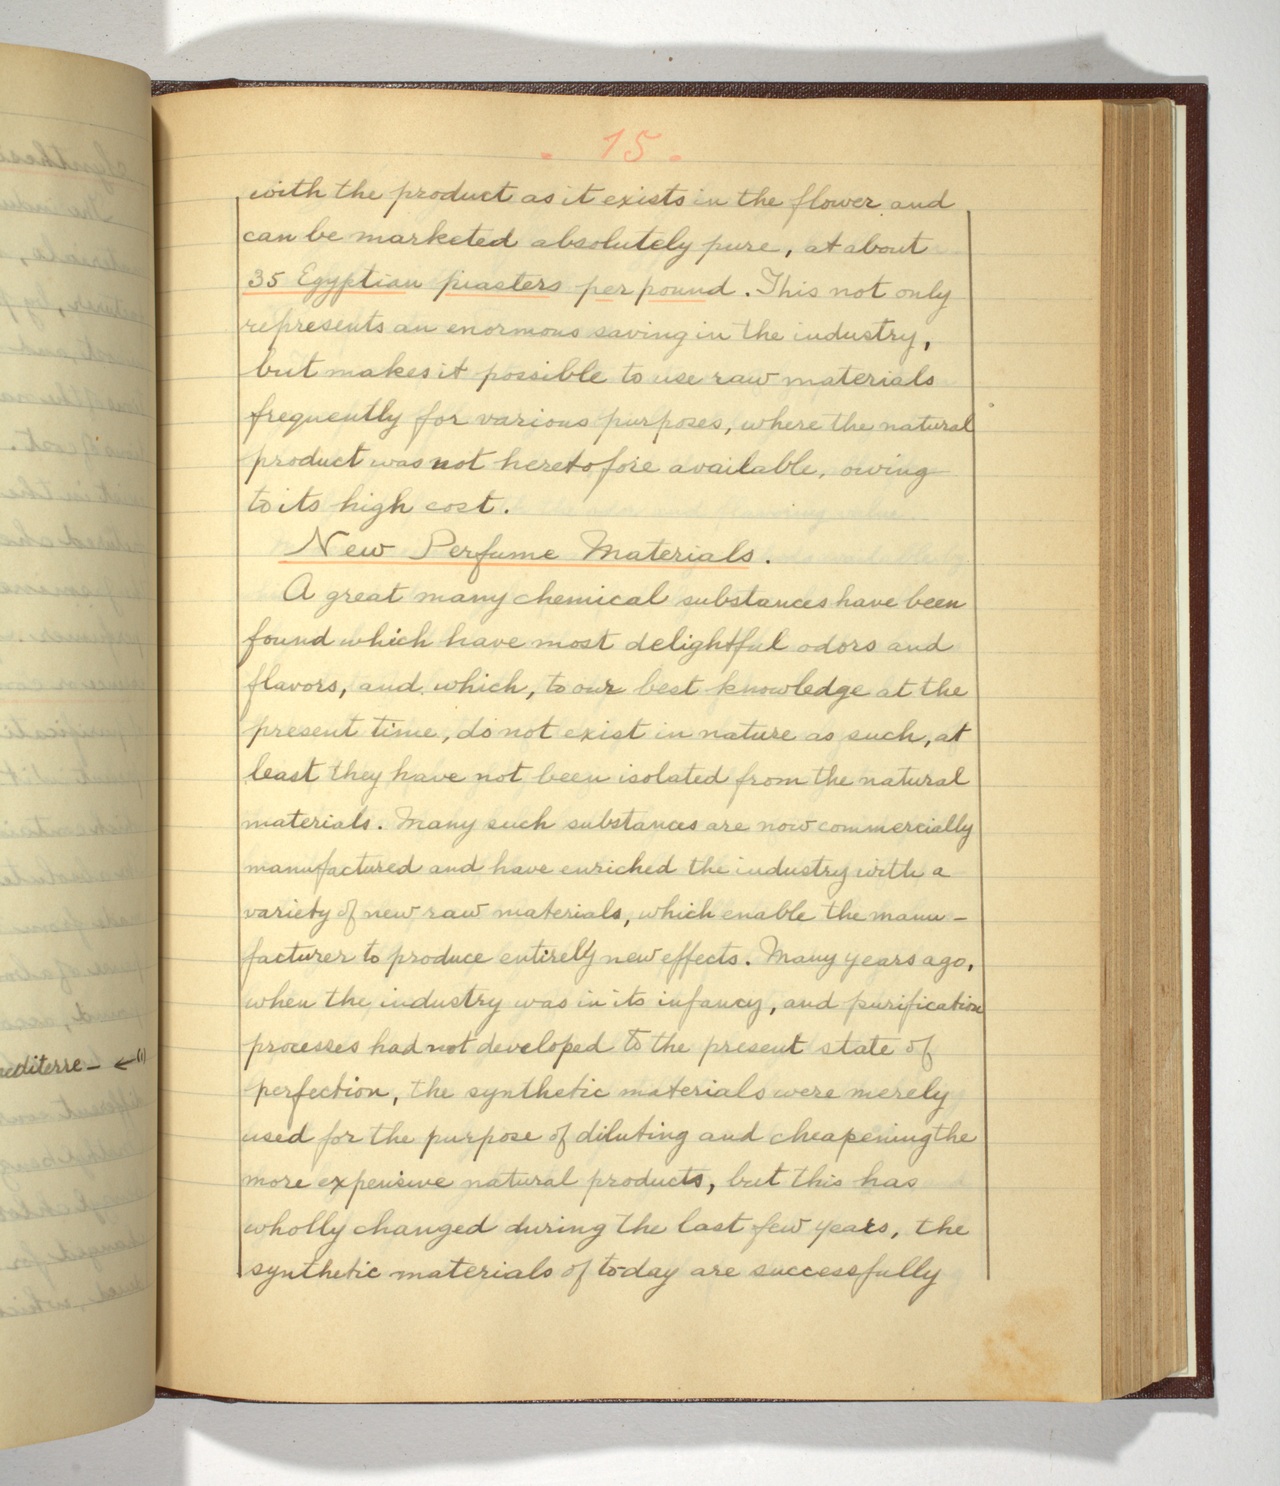 . 15 .
with the product as it exists in the flower and
can be marketed absolutely pure, at about
35 Egyptian piasters per pound. This not only
represents an enormous saving in the industry,
but makes it possible to use raw materials
frequently for various purposes, where the natural
product was not heretofore available, owing
to its high cost.
New Perfume Materials.
A great many chemical substances have been
found which have most delightful odors and
flavors, and which, to our best knowledge at the
present time, do not exist in nature as such, at
least they have not been isolated from the natural
materials. Many such substances are now commercially
manufactured and have enriched the industry with a
variety of new raw materials, which enable the manu-
facturer to produce entirely new effects. Many years ago,
when the industry was in its infancy, and purification
processes had not developed to the present state of
perfection, the synthetic materials were merely
used for the purpose of diluting and cheapening the
more expensive natural products, but this has
wholly changed during the last few years, the
synthetic materials of to-day are successfully
mediterre- ←(1)